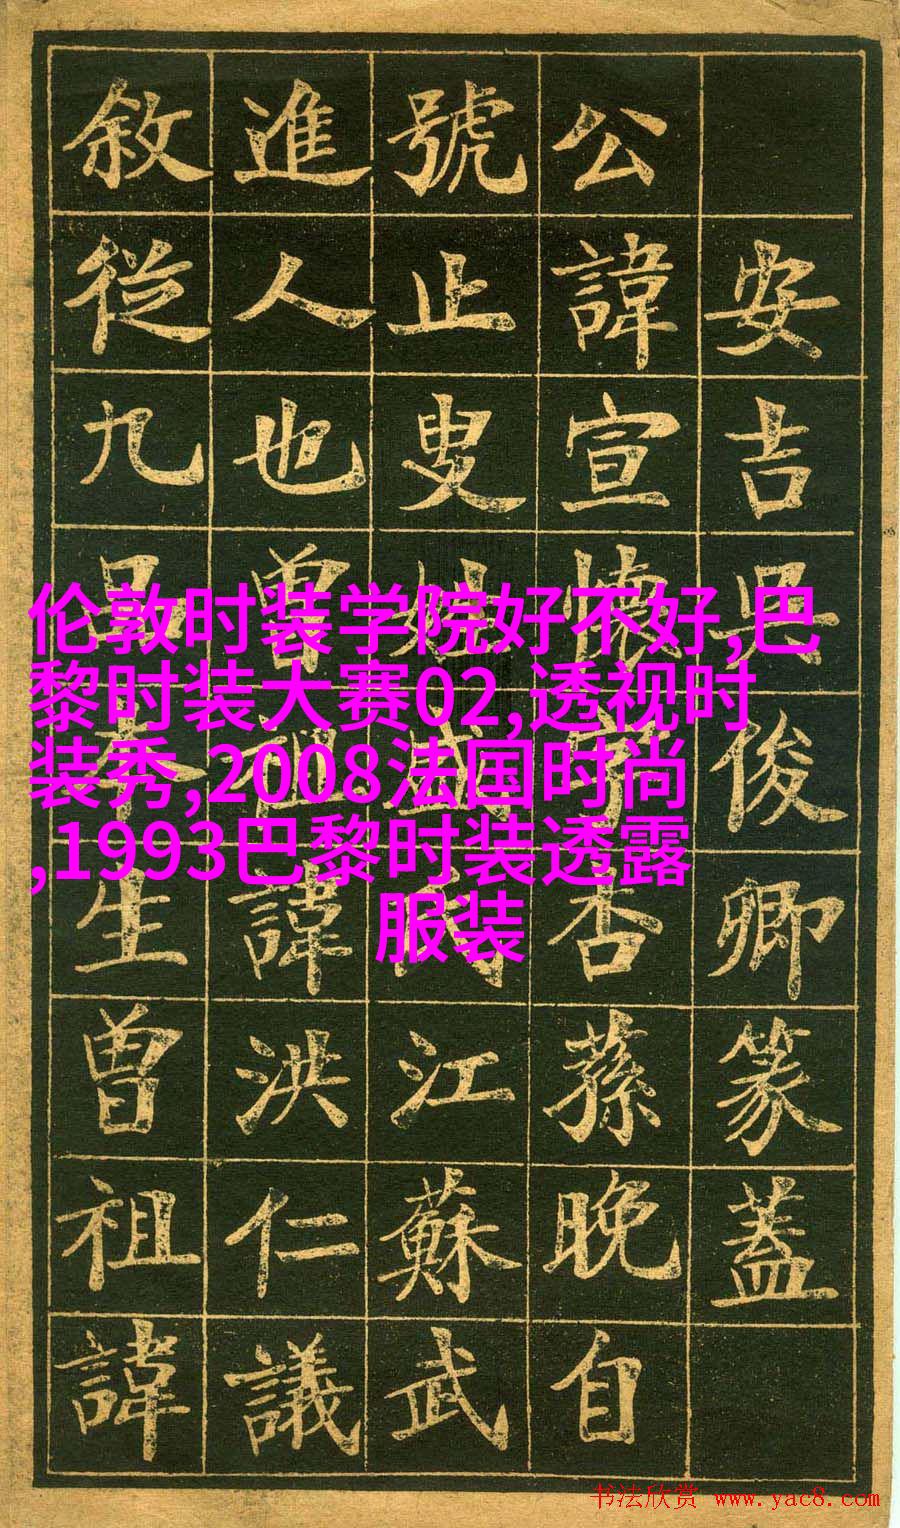 安吉吳俊卿篆蓋
公諱宣懷字杏蓀晚自
號止叟姓盛氏江蘇武
進人也曾祖諱洪仁議
敘從九品本生曾祖諱
伦敦时装学院好不好,巴
黎时装大赛02,透视时
装秀,2008法国时尚
,1993巴黎时装透露
服装
书法欣赏 www.yac8.com